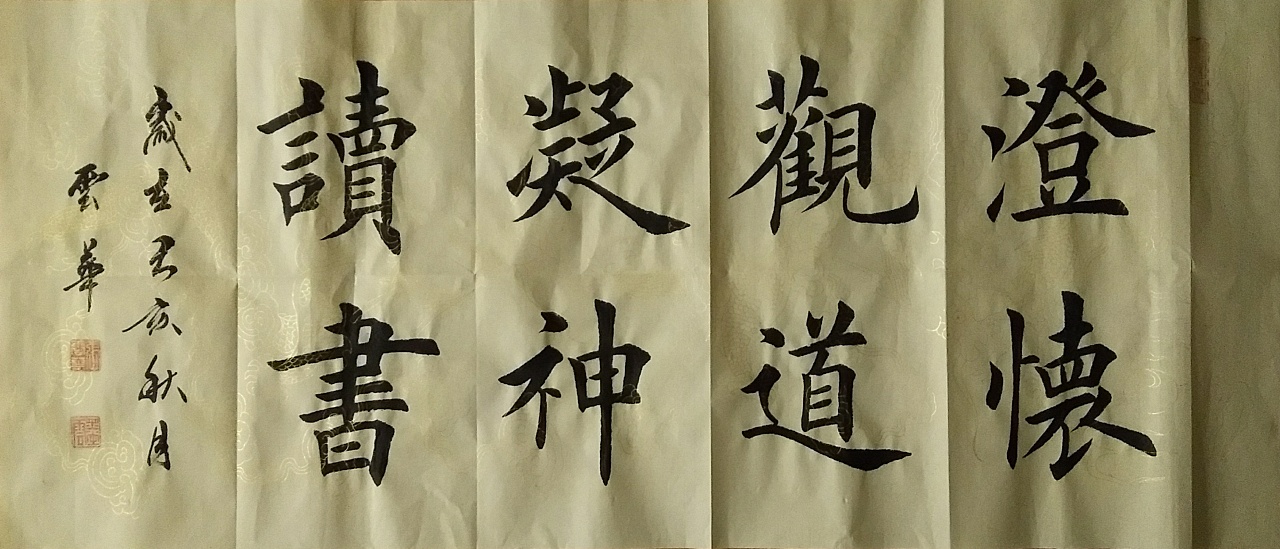 澄懷
觀道
凝神
讀書
歲在己亥秋月
雲華